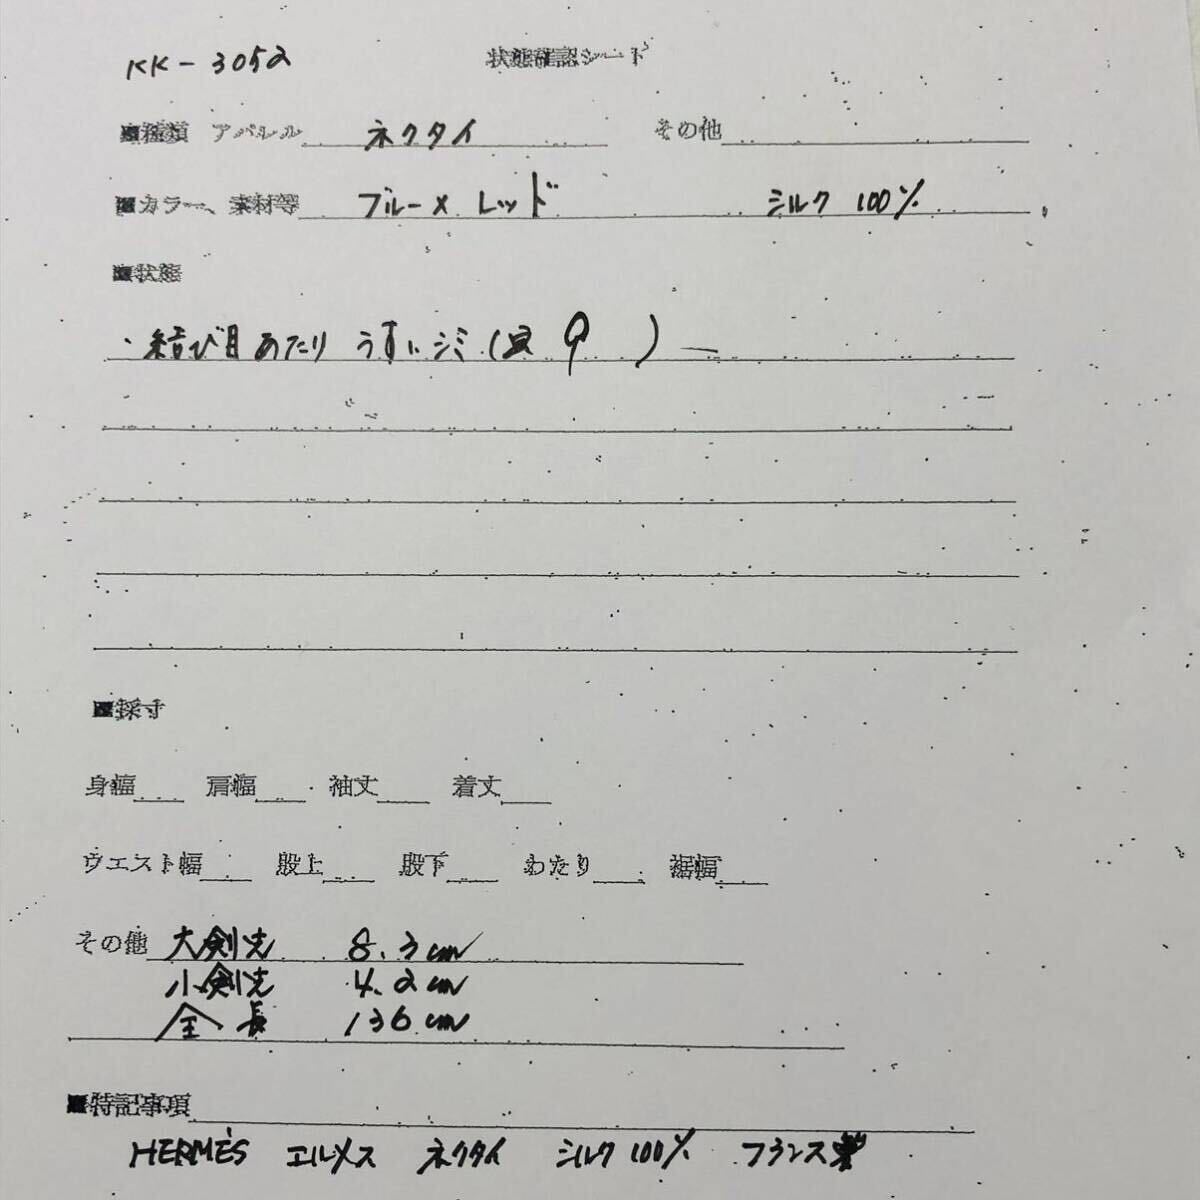 KK-3052 状態確認シート
■種類 アパレル ネクタイ その他
■カラー、素材等 ブルー×レッド シルク 100%
■状態
・結び目あたり うすいシミ ( 9 )
■採寸
身幅 肩幅 袖丈 着丈
ウエスト幅 股上 股下 わたり 裾幅
その他 大剣先 8.3cm
小剣先 4.2cm
全長 136cm
■特記事項
HERMÈS エルメス ネクタイ シルク100% フランス製